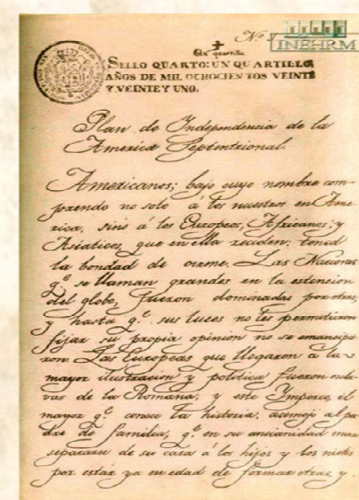 Nº 8
INEHRM
Un quartillo
SELLO QUARTO: UN QUARTILLO
AÑOS DE MIL OCHOCIENTOS VEINTE
Y VEINTE Y UNO.
Plan de Independencia de la
America Septentrional.
Americanos; bajo cuyo nombre com-
prendo no solo á los nuestros en Ame-
rica, sinó á los Européos, Africanos, y
Asiaticos, que en ella reciden: tened
la bondad de oirme. Las Naciones
q.e se llaman grandes en la estencion
del globo, fueron dominadas por otras
y hasta q.e sus luces no les permitieron
fijar su propia opinion no se emancipa-
ron. Las Européas que llegaron á la
mayor ilustracion y politica fueron escla-
vas de la Romana; y este Imperio, el
mayor q.e conoce la historia, asemejó al pa-
dre de familia, q.e en su ancianidad mira
separarse de su casa á los hijos y los nietos
por estar ya en edad de formar otras, y